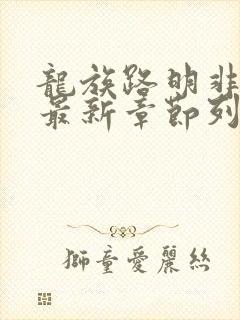 龍族路明非
最新章節列
獅童愛麗絲